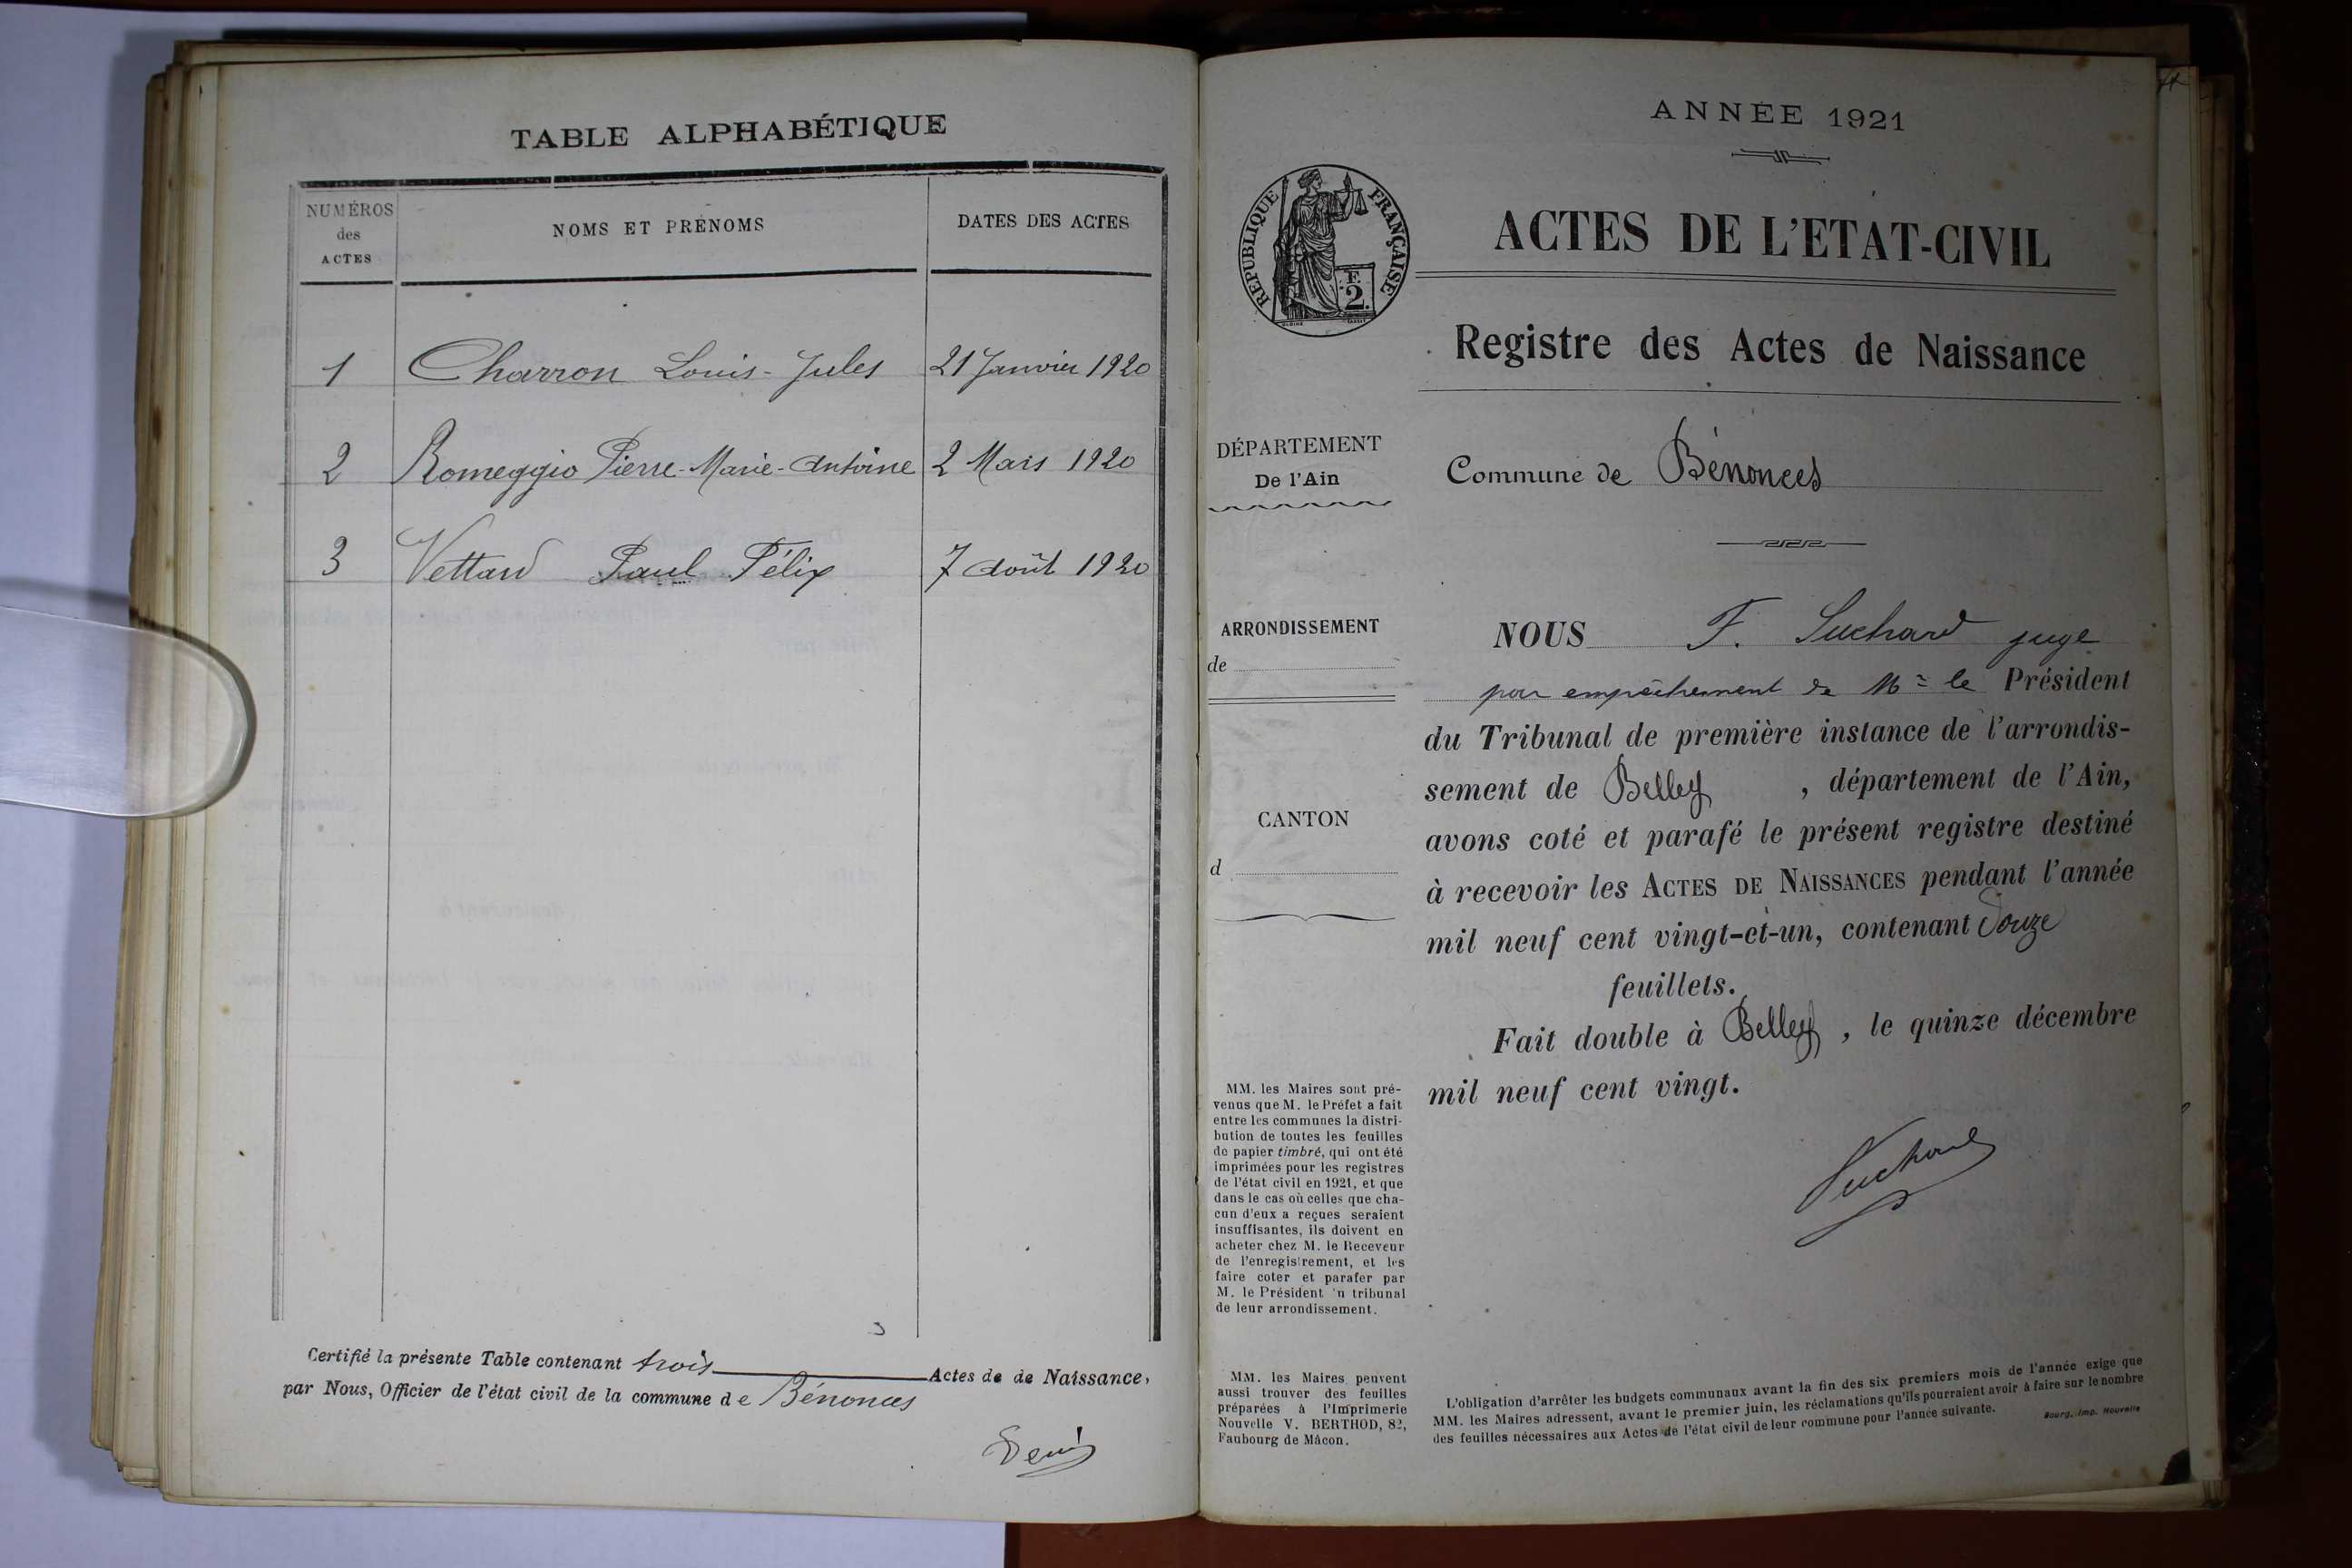 TABLE ALPHABÉTIQUE
NUMÉROS
des
ACTES
NOMS ET PRÉNOMS
DATES DES ACTES
1 Charron Louis-Jules 21 Janvier 1920
2 Romeggio Pierre-Marie-Antoine 2 Mars 1920
3 Vettard Paul Félix 7 Août 1920
Certifié la présente Table contenant trois Actes de de Naissance,
par Nous, Officier de l'état civil de la commune de Bénonces
ANNÉE 1921
RÉPUBLIQUE FRANÇAISE
F.
2
ACTES DE L'ETAT-CIVIL
Registre des Actes de Naissance
DÉPARTEMENT
De l'Ain
Commune de Bénonces
ARRONDISSEMENT
de
CANTON
d
NOUS F. Suchard juge
pour empêchement de Mr le Président
du Tribunal de première instance de l'arrondis-
sement de Belley , département de l'Ain,
avons coté et parafé le présent registre destiné
à recevoir les ACTES DE NAISSANCES pendant l'année
mil neuf cent vingt-et-un, contenant douze
feuillets.
Fait double à Belley , le quinze décembre
mil neuf cent vingt.
Suchard
MM. les Maires sont pré-
venus que M. le Préfet a fait
entre les communes la distri-
bution de toutes les feuilles
de papier timbré, qui ont été
imprimées pour les registres
de l'état civil en 1921, et que
dans le cas où celles que cha-
cun d'eux a reçues seraient
insuffisantes, ils doivent en
acheter chez M. le Receveur
de l'enregistrement, et les
faire coter et parafer par
M. le Président 'u tribunal
de leur arrondissement.
MM. les Maires peuvent
aussi trouver des feuilles
préparées à l'Imprimerie
Nouvelle V. BERTHOD, 82,
Faubourg de Mâcon.
L'obligation d'arrêter les budgets communaux avant la fin des six premiers mois de l'année exige que
MM. les Maires adressent, avant le premier juin, les réclamations qu'ils pourraient avoir à faire sur le nombre
des feuilles nécessaires aux Actes de l'état civil de leur commune pour l'année suivante.
Bourg, Imp. Nouvelle